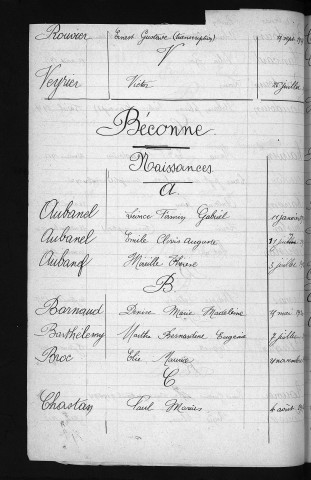 Rouvier Ernest Gustave (transcription) 4 sept.
V
Veyrier Victor 25 juillet
Béconne
Naissances
A
Aubanel Léonce Firmin Gabriel 11 janvier
Aubanel Emile Clovis Auguste
Aubanel Mireille Thérèse 5 juillet
B
Barnaud Denise Marie Madeleine 4 mai
Barthélemy Marthe Bernardine Eugénie 7 juillet
Broc Elie Maurice 4 novembre
C
Chastan Paul Marius 6 août